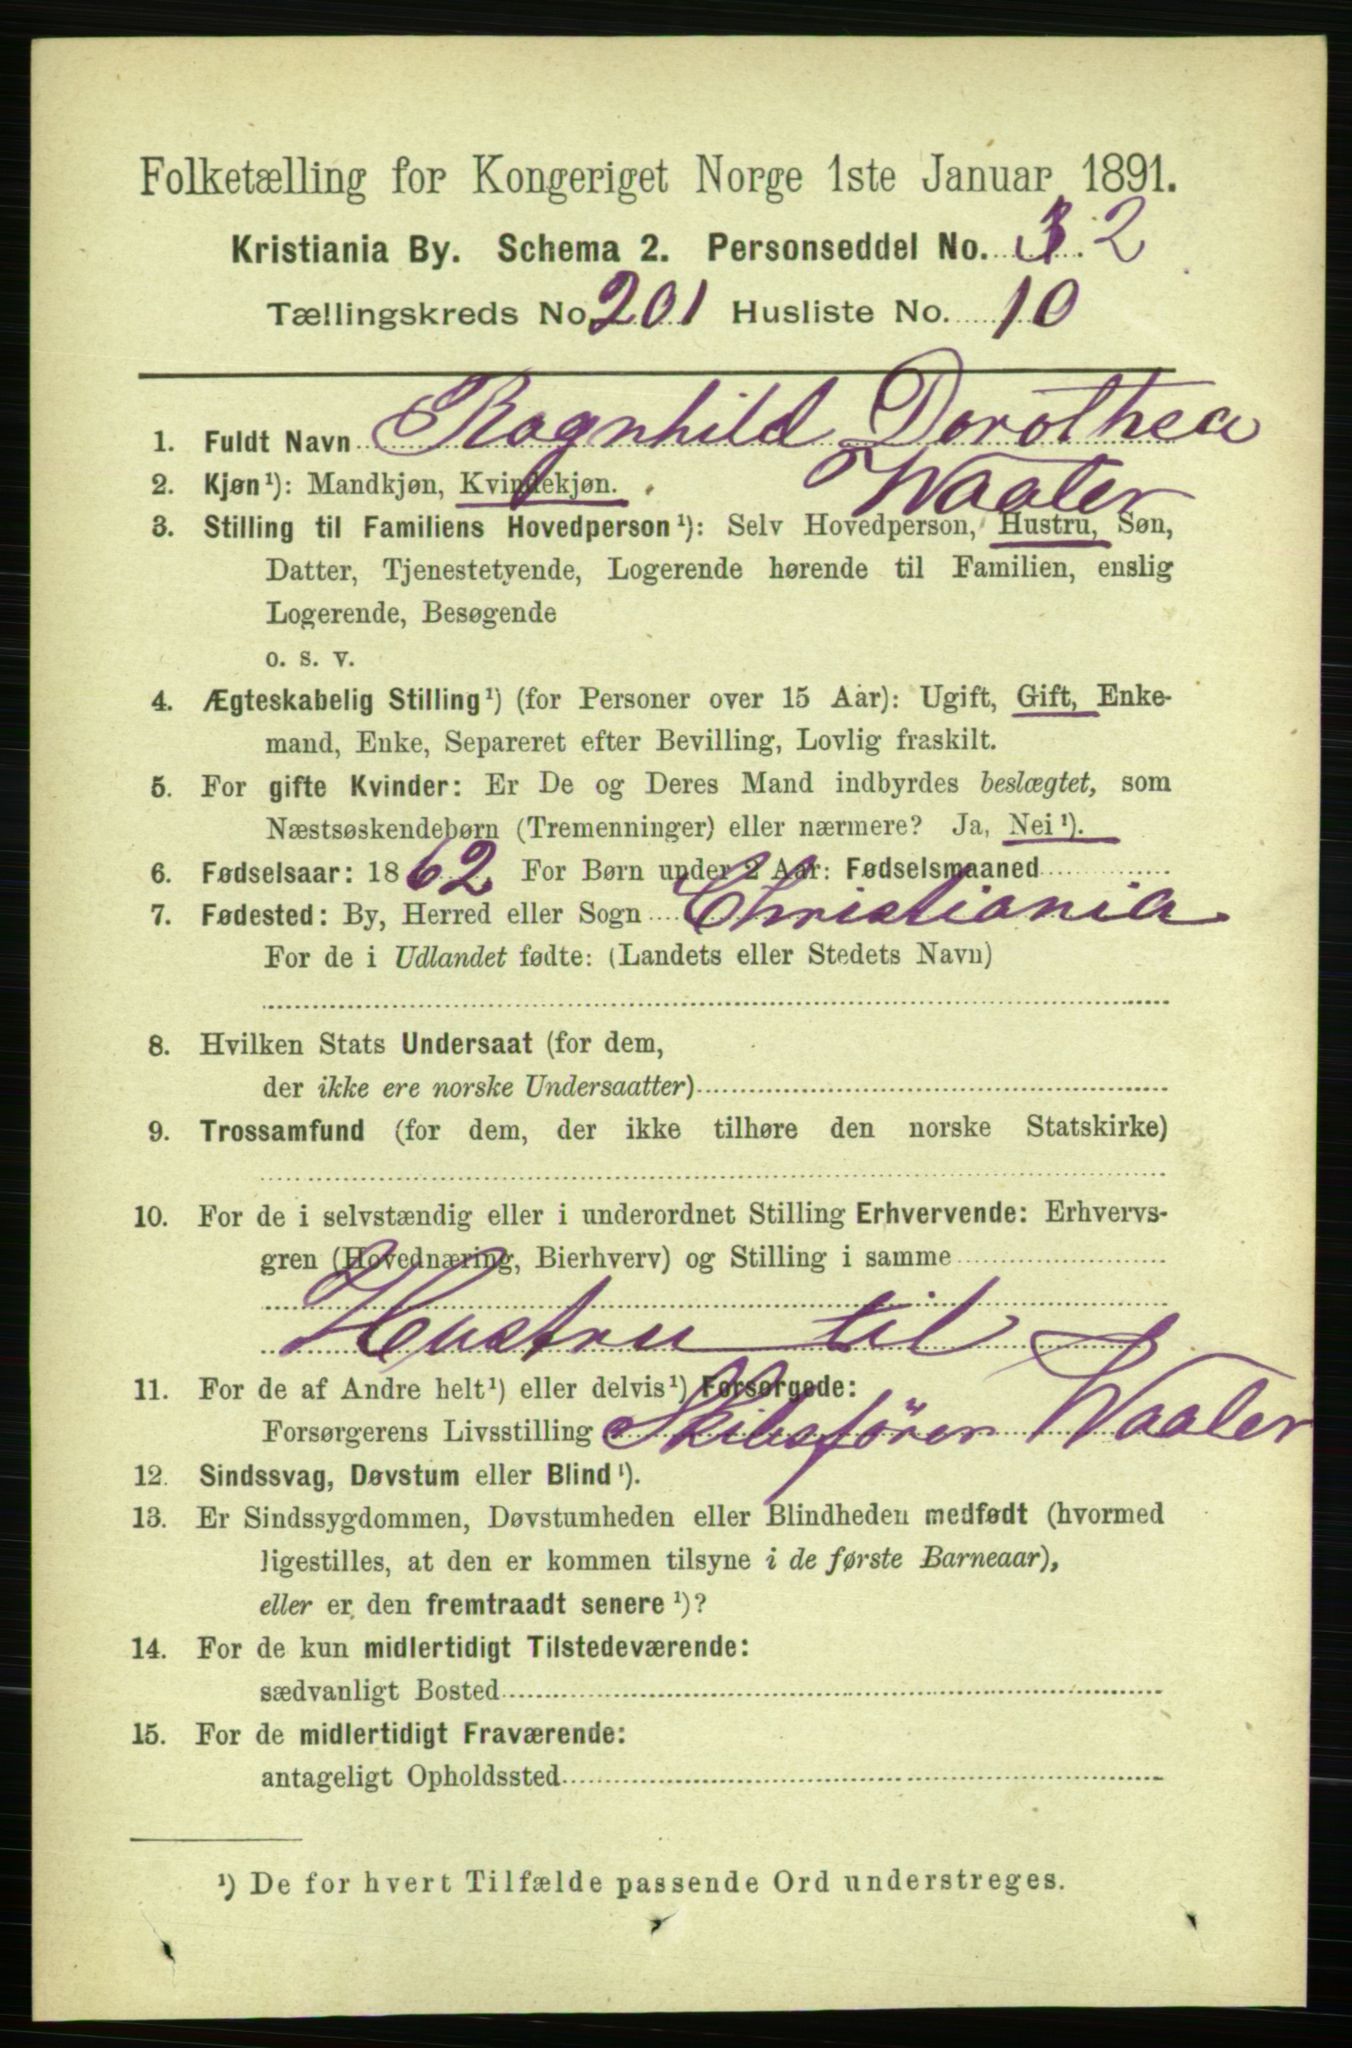 Folketælling for Kongeriget Norge 1ste Januar 1891.
Kristiania By. Schema 2. Personseddel No. 2
Tællingskreds No 201 Husliste No. 10
1. Fuldt Navn Ragnhild Dorothea
Waaler
2. Kjøn¹): Mandkjøn, Kvindekjøn.
3. Stilling til Familiens Hovedperson¹): Selv Hovedperson, Hustru, Søn,
Datter, Tjenestetyende, Logerende hørende til Familien, enslig
Logerende, Besøgende
o. s. v.
4. Ægteskabelig Stilling¹) (for Personer over 15 Aar): Ugift, Gift, Enke-
mand, Enke, Separeret efter Bevilling, Lovlig fraskilt.
5. For gifte Kvinder: Er De og Deres Mand indbyrdes beslægtet, som
Næstsøskendebørn (Tremenninger) eller nærmere? Ja, Nei¹).
6. Fødselsaar: 1862 For Børn under 2 Aar: Fødselsmaaned
7. Fødested: By, Herred eller Sogn Christiania
For de i Udlandet fødte: (Landets eller Stedets Navn)
8. Hvilken Stats Undersaat (for dem,
der ikke ere norske Undersaatter)
9. Trossamfund (for dem, der ikke tilhøre den norske Statskirke)
10. For de i selvstændig eller i underordnet Stilling Erhvervende: Erhvervs-
gren (Hovednæring, Bierhverv) og Stilling i samme
Hustru til
11. For de af Andre helt¹) eller delvis¹) Forsørgede:
Forsørgerens Livsstilling Skibsfører Waaler
12. Sindssvag, Døvstum eller Blind¹).
13. Er Sindssygdommen, Døvstumheden eller Blindheden medfødt (hvormed
ligestilles, at den er kommen tilsyne i de første Barneaar),
eller er den fremtraadt senere¹)?
14. For de kun midlertidigt Tilstedeværende:
sædvanligt Bosted
15. For de midlertidigt Fraværende:
antageligt Opholdssted
¹) De for hvert Tilfælde passende Ord understreges.